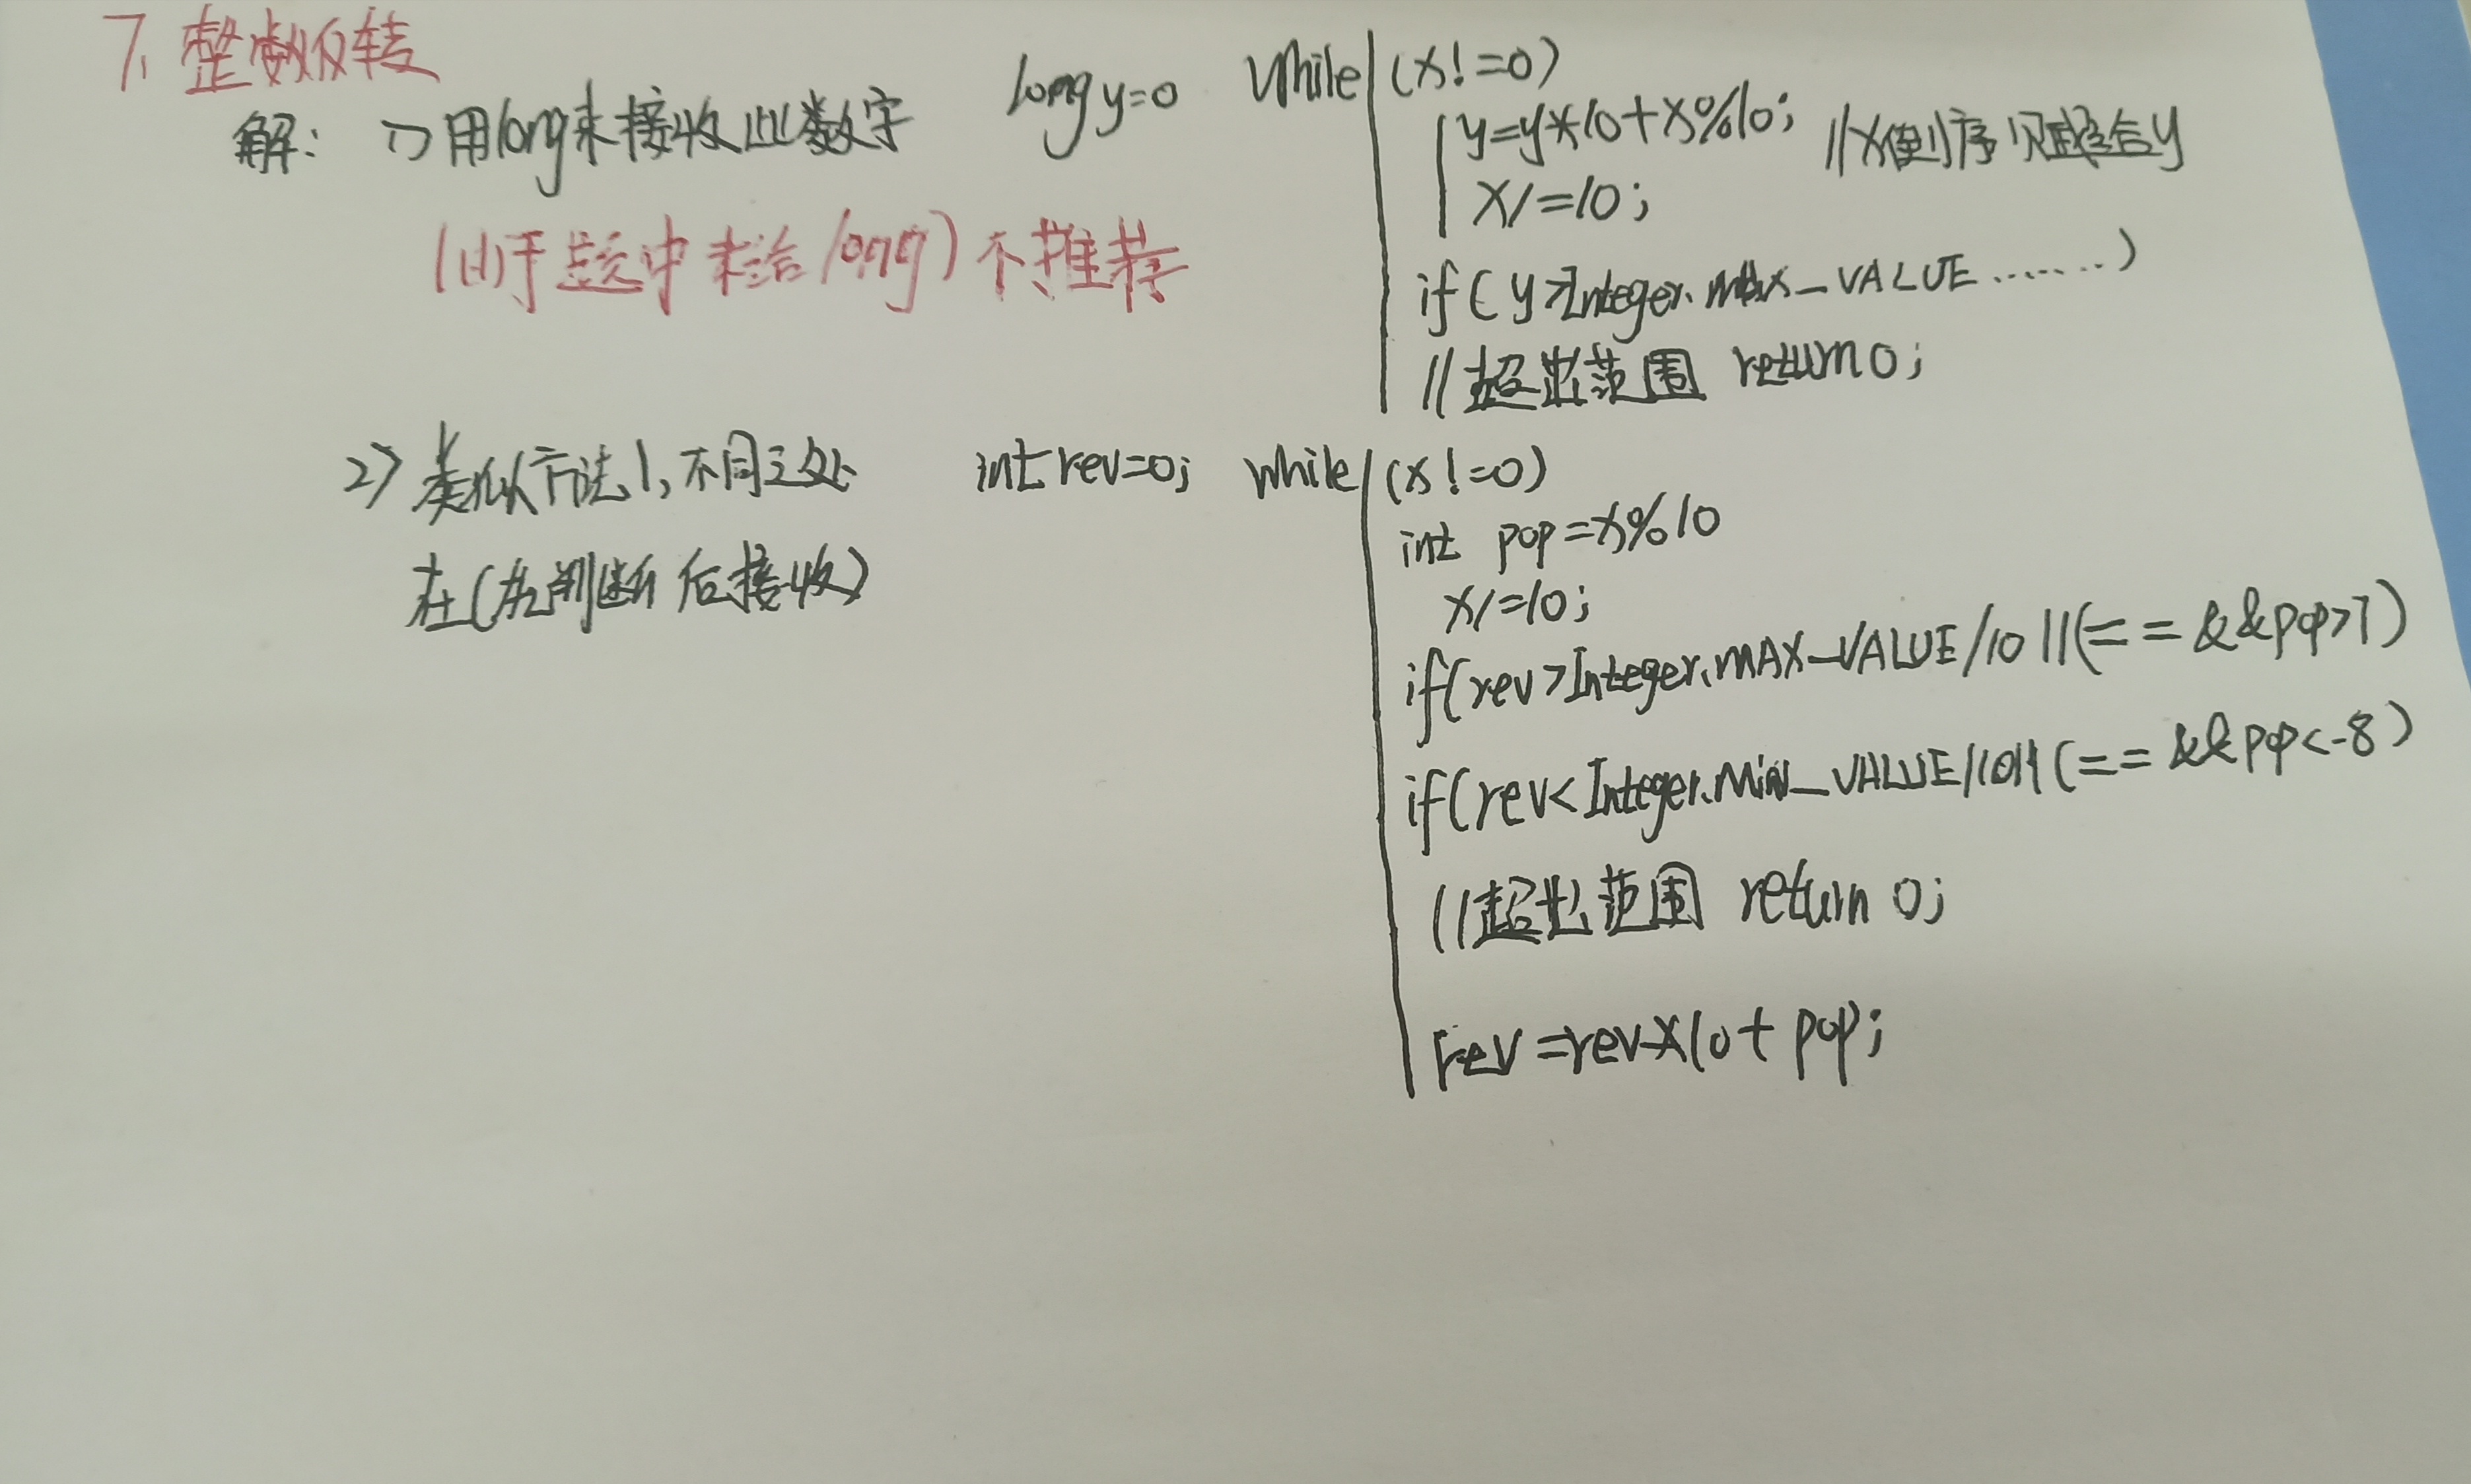 7. 整数反转
解: 1) 用long来接收此数字 long y=0 while (x!=0)
y=y*10+x%10; //x倒序 赋给y
x/=10;
(由于题中未给long) 不推荐
if(y>Integer.MAX_VALUE.......)
//超出范围 return 0;
2) 类似方法1, 不同之处 int rev=0; while (x!=0)
在(先判断后接收) int pop=x%10
x/=10;
if(rev>Integer.MAX_VALUE/10||(== &&pop>7)
if(rev<Integer.MIN_VALUE/10||(== &&pop<-8)
//超出范围 return 0;
rev=rev*10+pop;